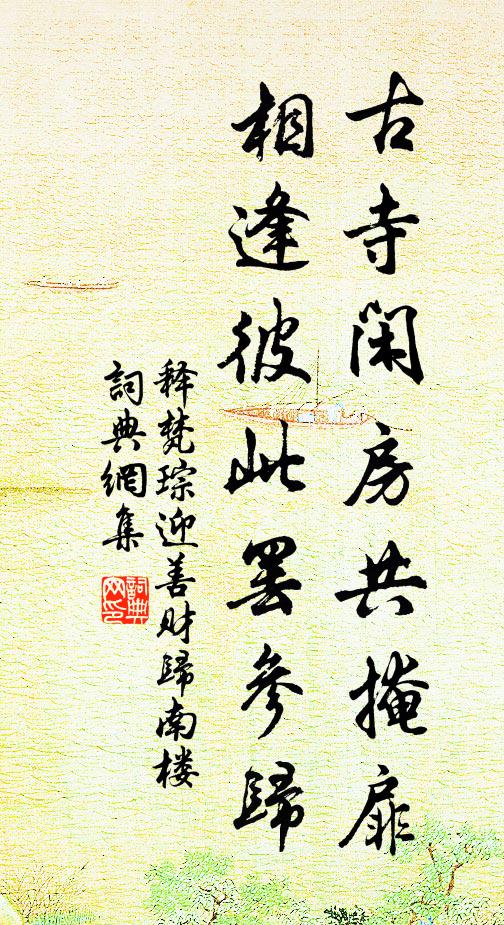 古寺閑房共掩扉
相逢彼此罢參歸
释梵琮迎善财歸南楼
詞典網集
詞典網印